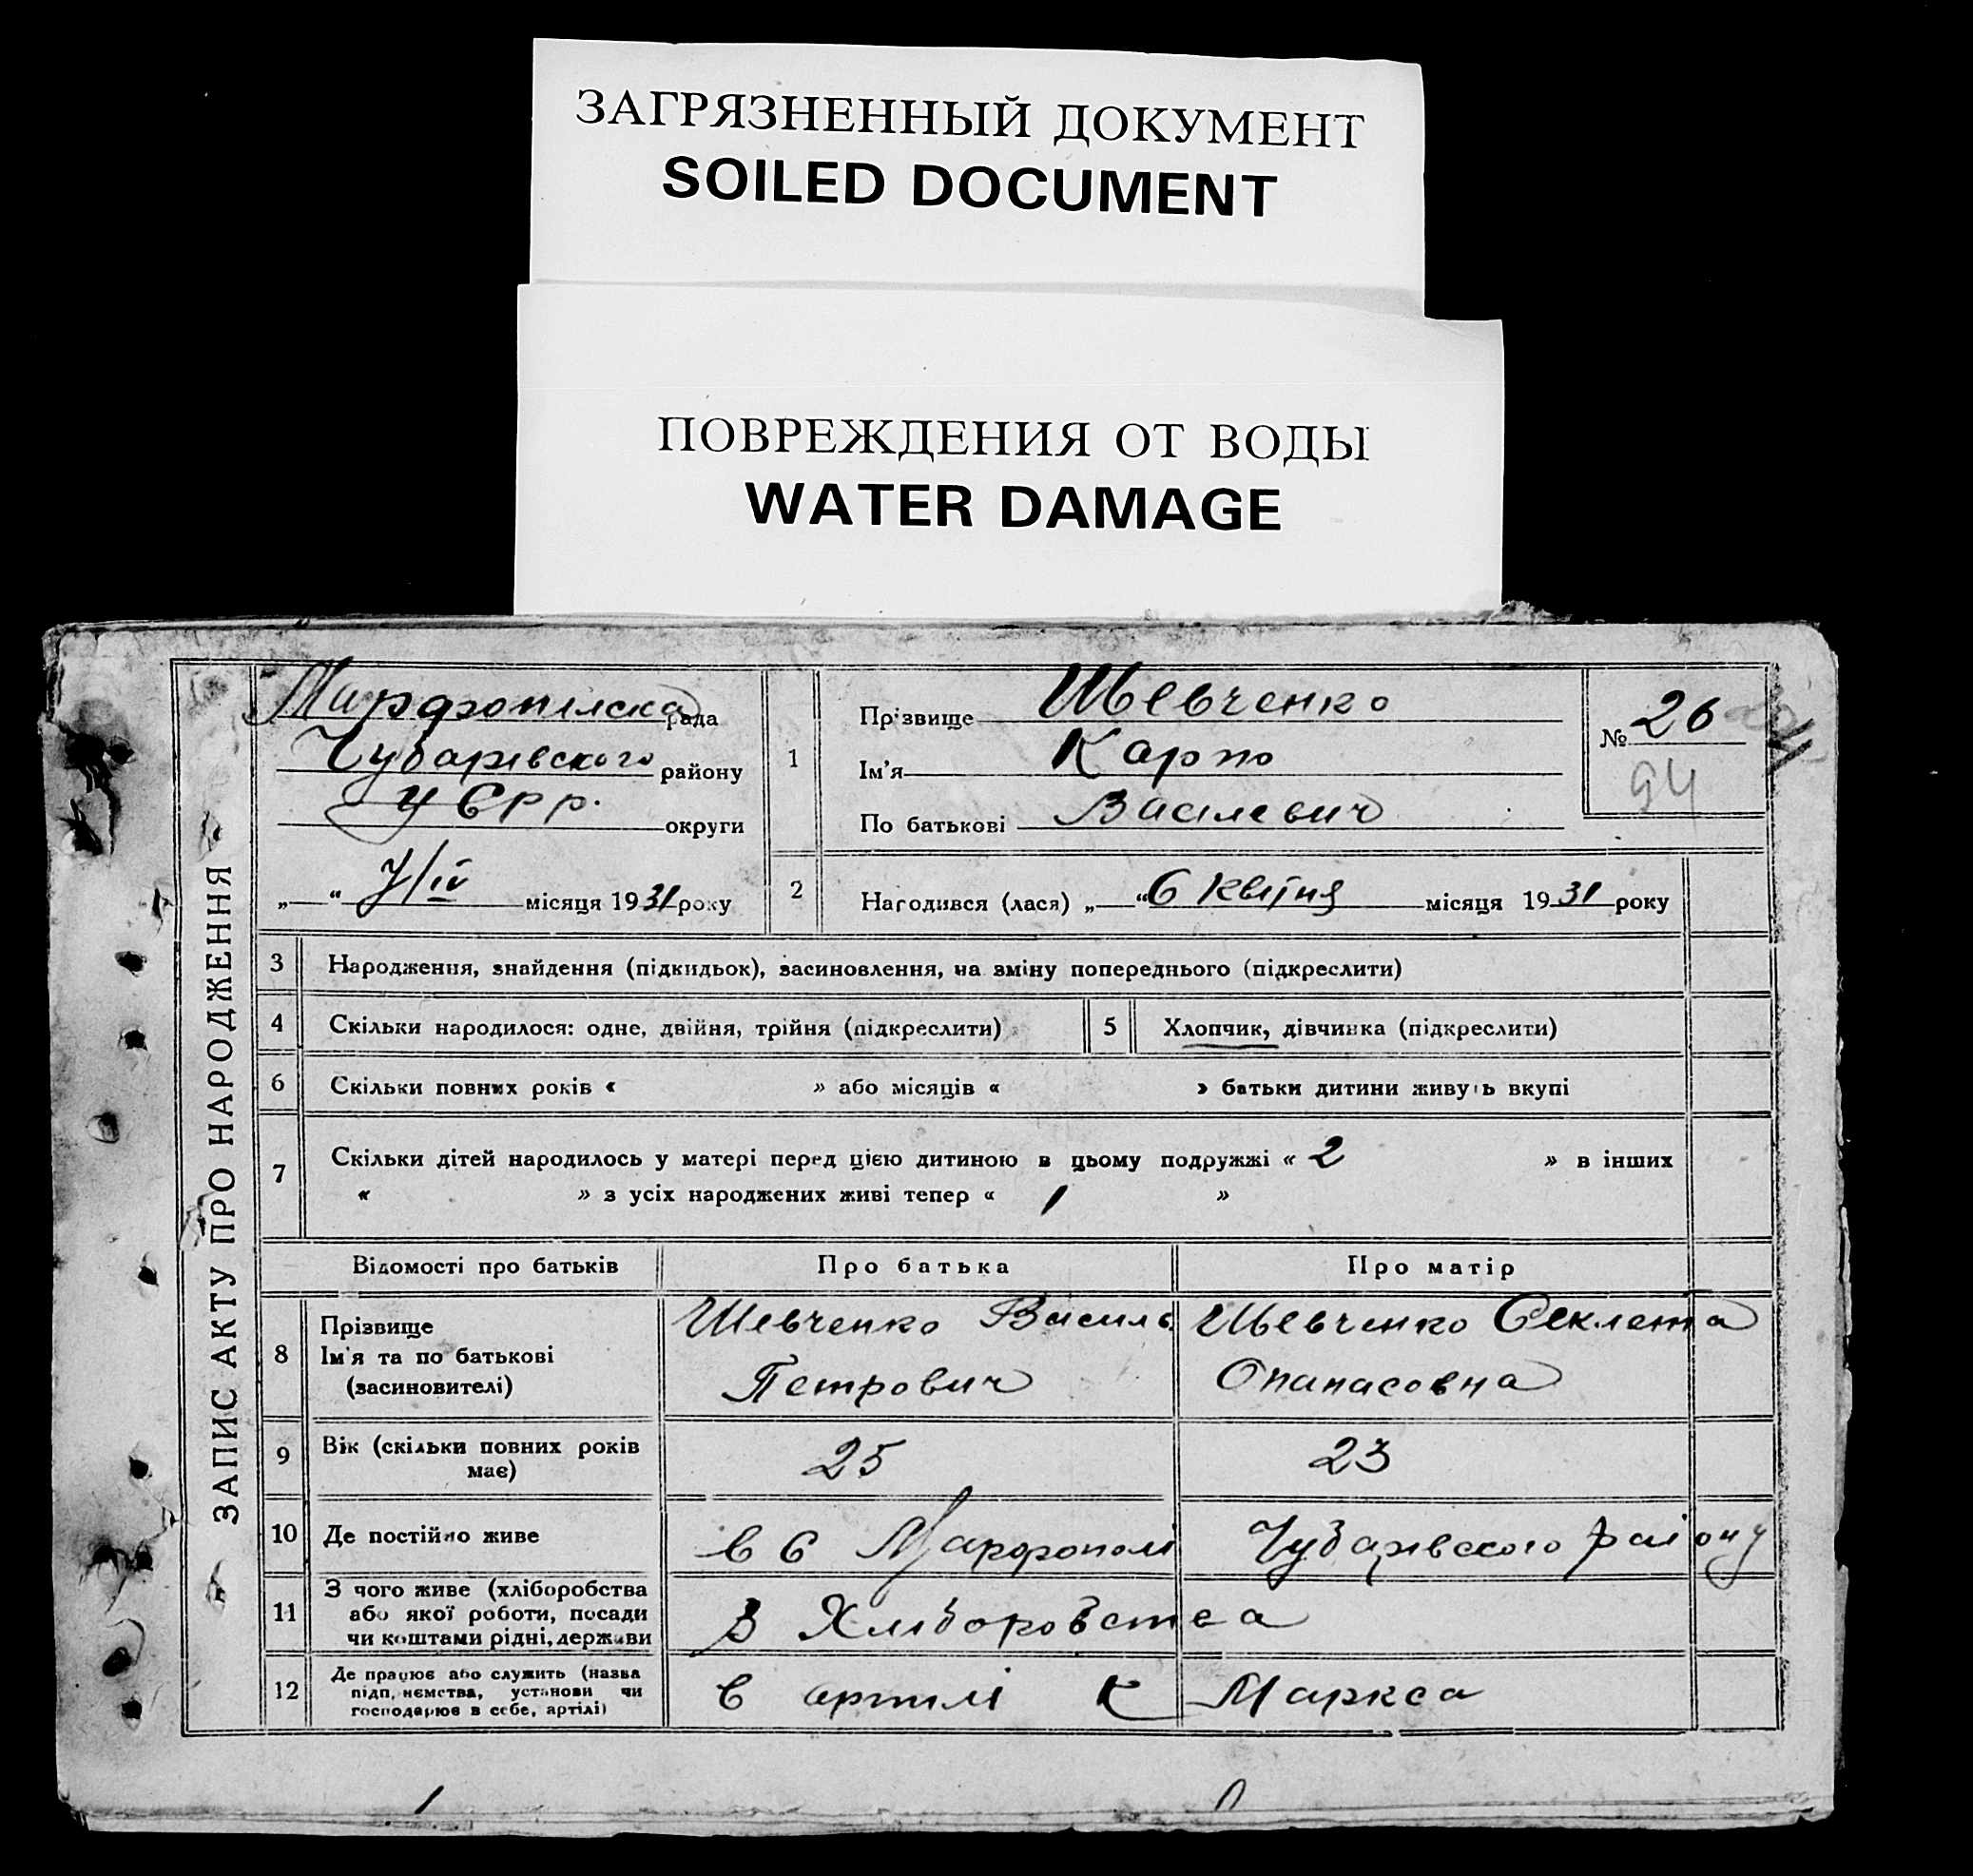 ЗАГРЯЗНЕННЫЙ ДОКУМЕНТ
SOILED DOCUMENT
ПОВРЕЖДЕНИЯ ОТ ВОДЫ
WATER DAMAGE
ЗАПИС АКТУ ПРО НАРОДЖЕННЯ
Марфопілска рада
Чубарівского району
УСРР. округи
„ “ 7/IV місяця 1931 року
1
Прізвище Шевченко
Ім'я Карпо
По батькові Василевич
№ 26
94
2
Народився (лася) „ “ 6 Квітня місяця 1931 року
3 Народження, знайдення (підкидьок), засиновлення, на зміну попереднього (підкреслити)
4 Скільки народилося: одне, двійня, трійня (підкреслити)
5 Хлопчик, дівчинка (підкреслити)
6 Скільки повних років « » або місяців « » батьки дитини живуть вкупі
7 Скільки дітей народилось у матері перед цією дитиною в цьому подружжі « 2 » в інших
« » з усіх народжених живі тепер « 1 »
Відомості про батьків Про батька Про матір
8 Прізвище
Ім'я та по батькові
(засиновителі)
Шевченко Василь
Петрович
Шевченко Секлета
Опанасовна
9 Вік (скільки повних років
має)
25 23
10 Де постійно живе в с Марфополі Чубарівского району
11 З чого живе (хліборобства
або якої роботи, посади
чи коштами рідні, держави
З Хліборобства
12 Де працює або служить (назва
підприємства, установи чи
господарює в себе, артілі)
в артілі К Маркса